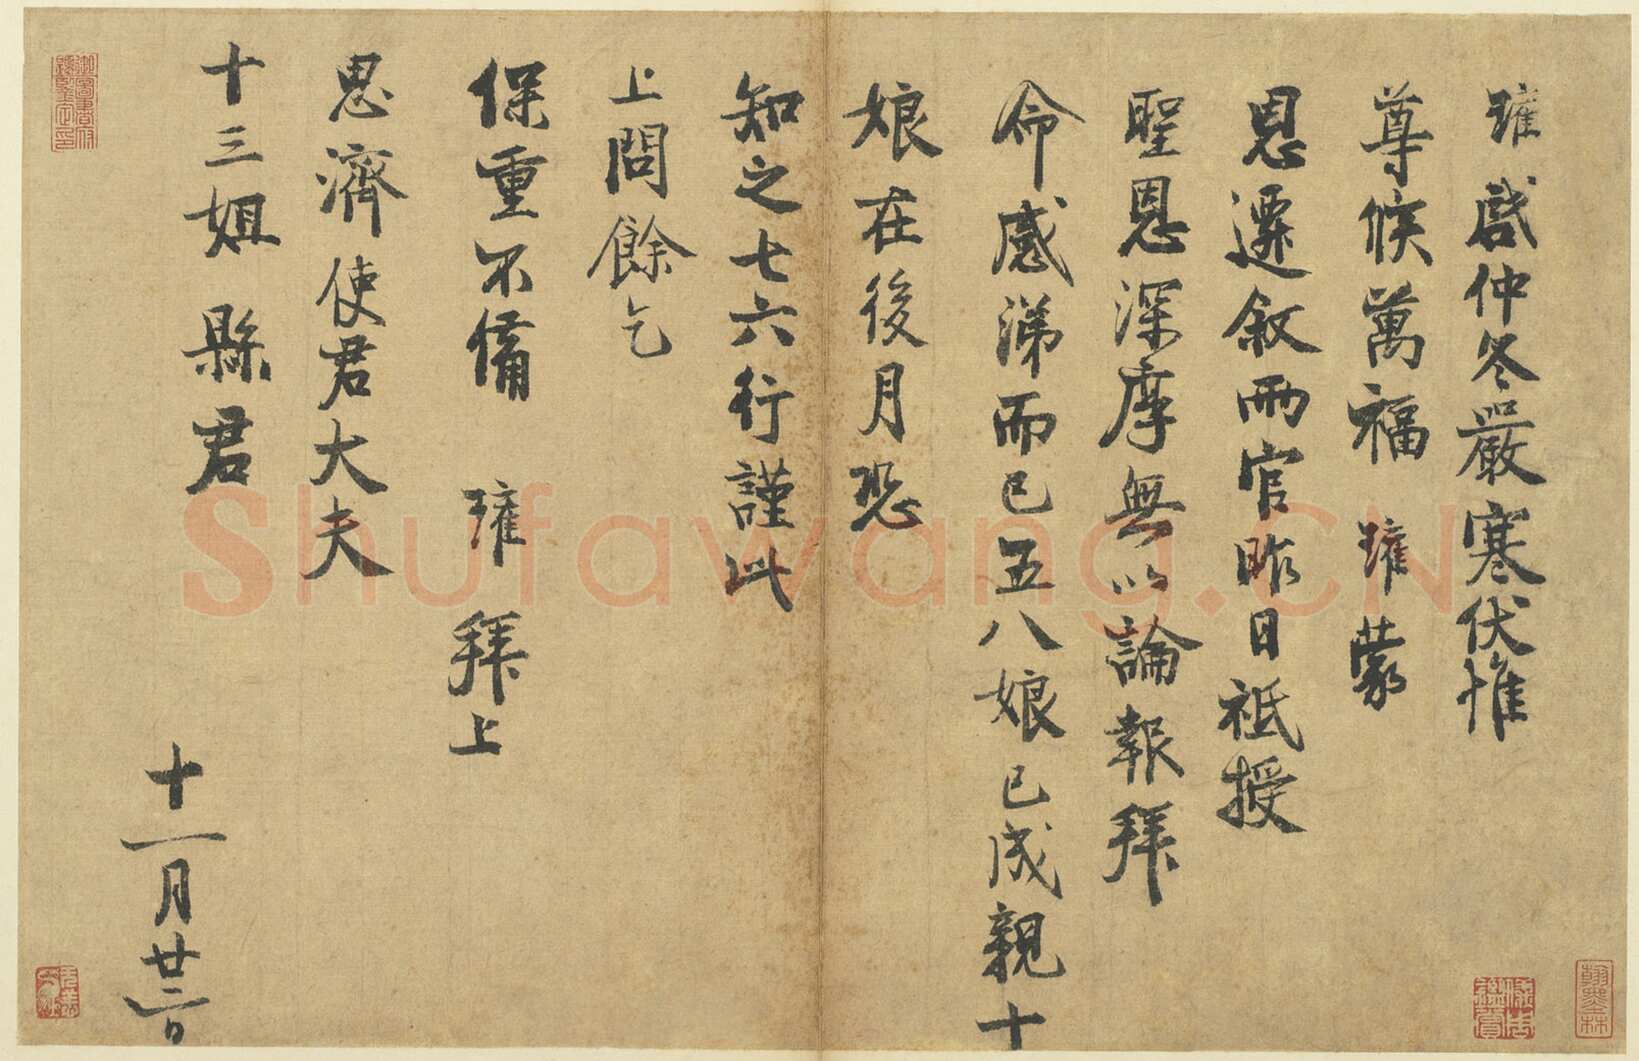 瓘啟仲冬嚴寒伏惟
尊候萬福瓘蒙
恩遷敘兩官昨日祗授
聖恩深厚無以論報拜
命感涕而已五八娘已成親十
娘在後月恐
知之七六行謹此
上問餘乞
保重不備 瓘 拜上
思濟使君大夫
十三姐縣君
十一月廿三日
Shufawang.CN